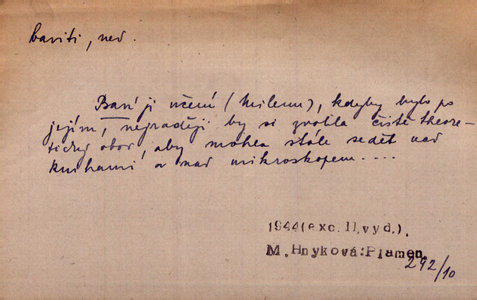 baviti, ned.
Baví ji učení (Milenu), kdyby bylo po
jejím, nejraději by si zvolila čistě theore-
tický obor, aby mohla stále sedět nad
knihami a nad mikroskopem....
1944(exc.II.vyd.).
M.Hnyková:Plamen.
292/10